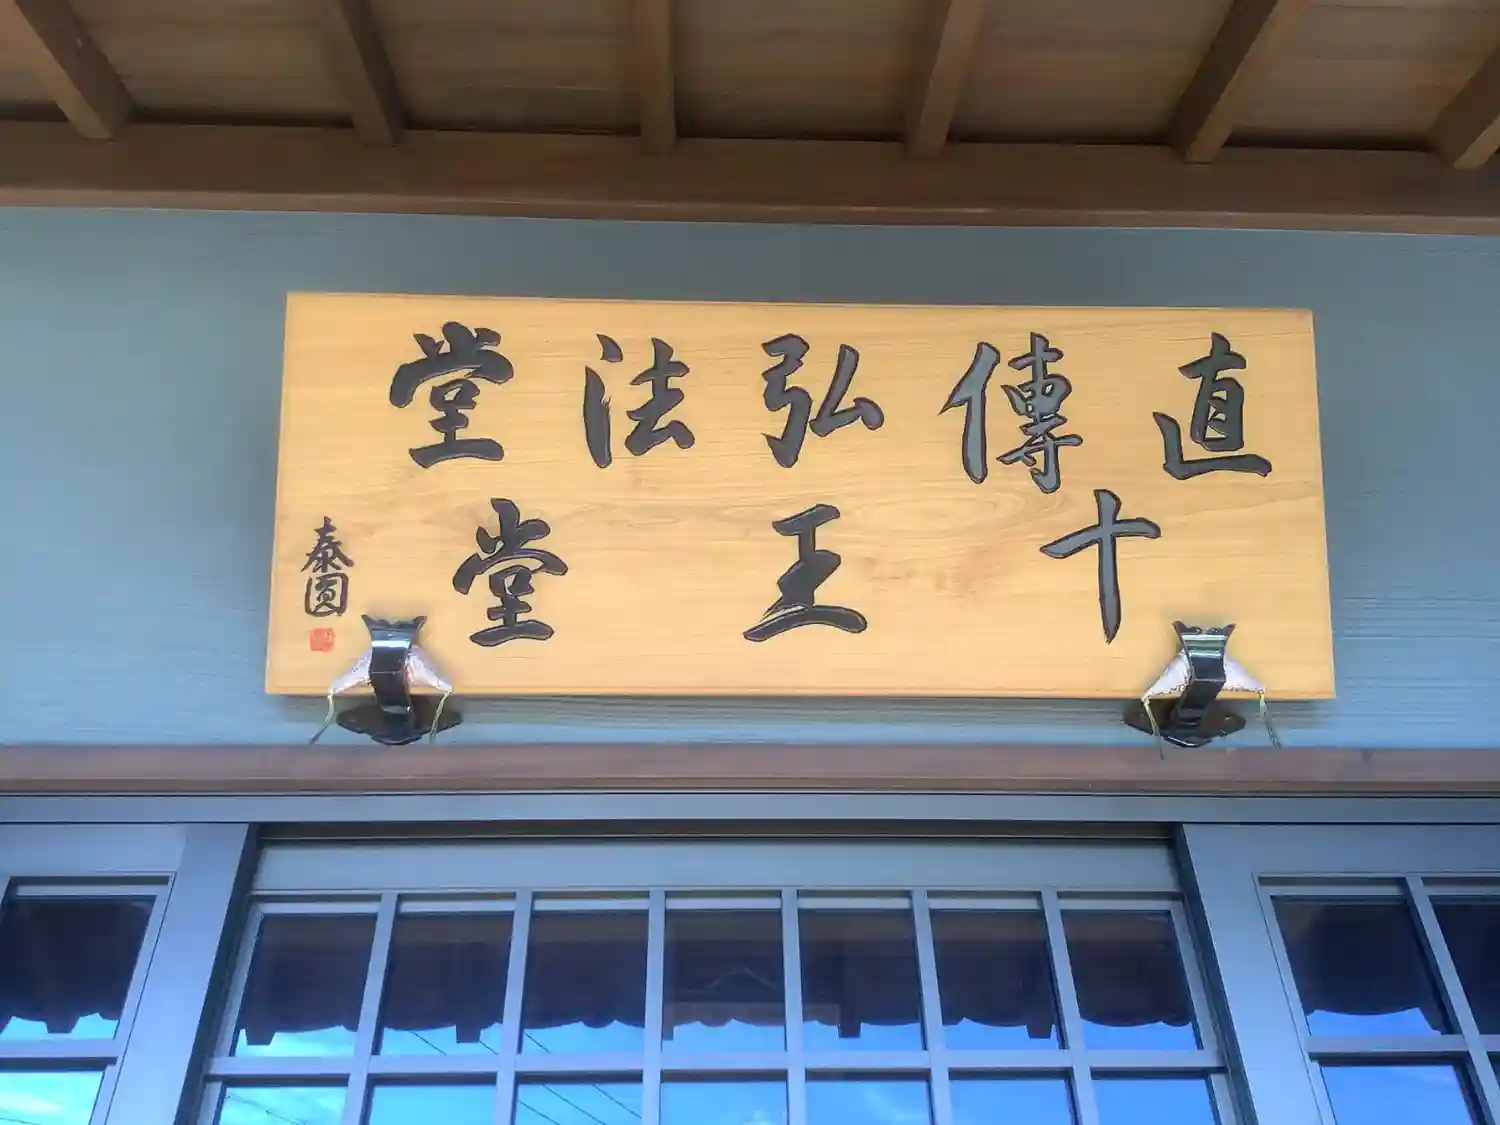 直傳弘法堂
十王堂
泰圓